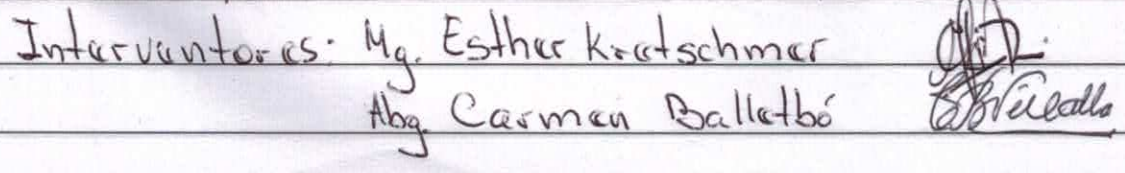 Interventores: Mg. Esther Kretschmer
Abg. Carmen Balletbó